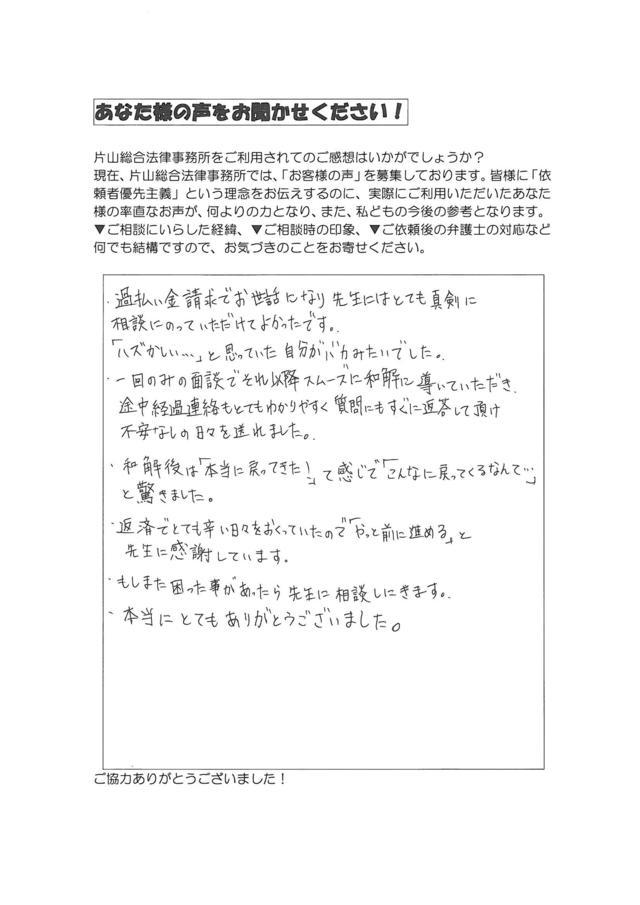 あなた様の声をお聞かせください！
片山総合法律事務所をご利用されてのご感想はいかがでしょうか？
現在、片山総合法律事務所では、「お客様の声」を募集しております。皆様に「依
頼者優先主義」という理念をお伝えするのに、実際にご利用いただいたあなた
様の率直なお声が、何よりの力となり、また、私どもの今後の参考となります。
▼ご相談にいらした経緯、▼ご相談時の印象、▼ご依頼後の弁護士の対応など
何でも結構ですので、お気づきのことをお寄せください。
・過払い金請求でお世話になり先生にはとても真剣に
相談にのっていただけてよかったです。
「ハズかしい…」と思っていた自分がバカみたいでした。
・一回のみの面談でそれ以降スムーズに和解に導いていただき
途中経過連絡もとてもわかりやすく質問にもすぐに返答して頂け
不安なしの日々を送れました。
・和解後は「本当に戻ってきた！」て感じで「こんなに戻ってくるなんて…」
と驚きました。
・返済でとても辛い日々をおくっていたので「やっと前に進める」と
先生に感謝しています。
・もしまた困った事があったら先生に相談しにきます。
・本当にとてもありがとうございました。
ご協力ありがとうございました！